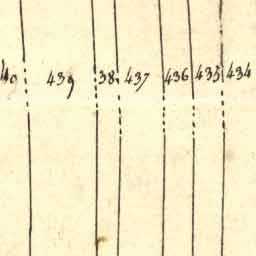 40 439 38 437 436 435 434